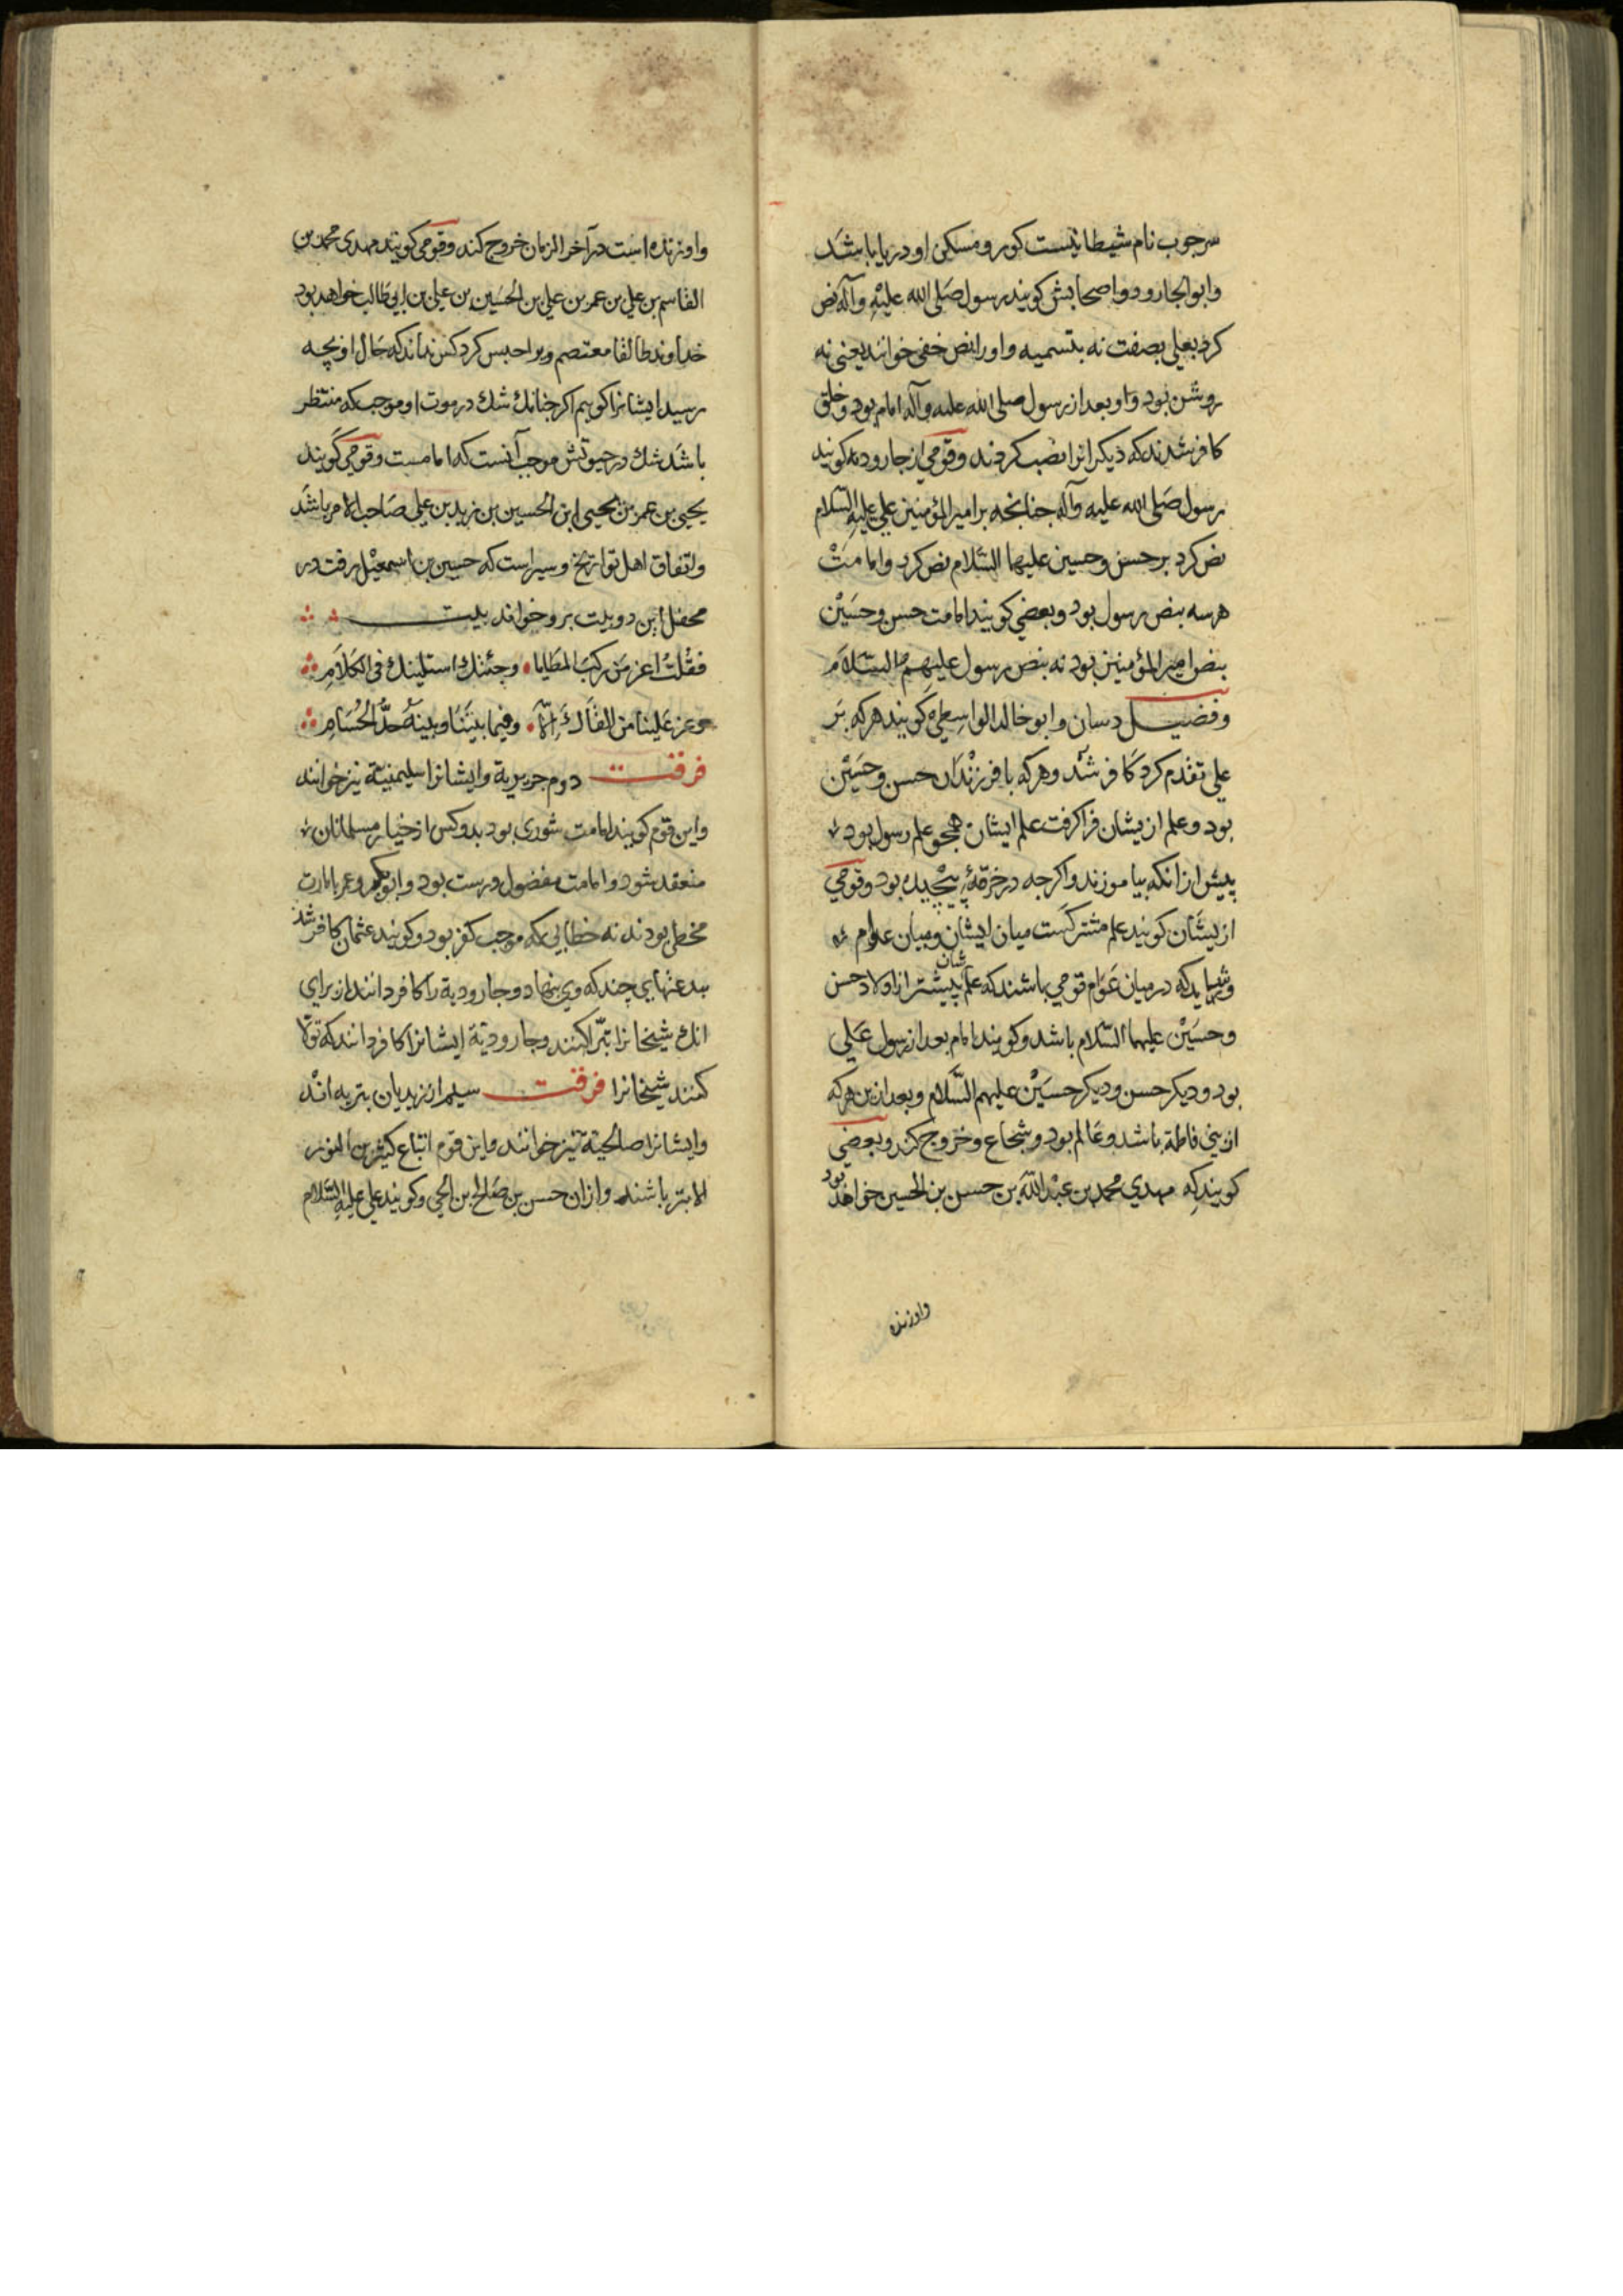 سرجوب نام شیطانیست کور و مسکن او دریا باشد
وابو الجارود و اصحابش کویند رسول صلی الله علیه وآله نص
کرد بعلی بصفت نه بتسمیه و او را نص خفی خوانند یعنی نه
روشن بود و او بعد از رسول صلی الله علیه وآله امام بود و خلق
کافر شدند که دیکرانرا نصب کردند وقومی از جارودیه کویند
رسول صلی الله علیه وآله جنانجه بر امیر المؤمنین علی علیه السلام
نص کرد بر حسن وحسین علیهما السلام نص کرد و امامت
هرسه بنص رسول بود و بعضی کویند امامت حسن وحسین
بنص امیر المؤمنین بود نه بنص رسول علیهم السلام
وفضیل دسان وابو خالد الواسطی کویند هرکه بر
علی تقدم کرد کافر شد وهرکه با فرزندان حسن وحسین
بود وعلم ازیشان فرا کرفت علم ایشان همجو علم رسول بود
پیش از انکه بیاموزند واکرجه در خرقهٔ پیچیده بود وقومی
ازیشان کویند علم مشترکست میان ایشان ومیان عوام
وشاید که در میان عوام قومی باشند که علمشان پیشتر از اولاد حسن
وحسین علیهما السلام باشد وکویند امام بعد از رسول علی
بود ودیکر حسن ودیکر حسین علیهم السلام وبعد ازین هرکه
از بنی فاطمة باشد وعالم بود وشجاع وخروج کند وبعضی
کویند که مهدی محمد بن عبد الله بن حسن بن الحسین خواهد بود
واو زنده
واو زنده است در آخر الزمان خروج کند وقومی کویند مهدی محمد بن
القاسم بن علی بن عمر بن علی بن الحسین بن علی بن ابی طالب خواهد بود
خداوند طالقا معتصم ویرا حبس کرد کس نداند که حال او بچه
رسید ایشانرا کوییم اکر جنانک شک در موت او موجب که منتظر
باشد شک در حیوتش موجب آنست که امامست وقومی کویند
یحیی بن عمر بن یحیی ابن الحسین بن زید بن علی صاحب الامر باشد
واتفاق اهل تواریخ وسیر است که حسین بن اسمعیل رفت در
محفل این دو بیت برو خواند بیت
فقلت اعز من رکب المطایا وجئتک استلینک فی الکلام
وعز علینا من القاک الا وفیما بیننا وبینه حد الحسام
فرقت دوم جریریة وایشانرا سلیمنیة نیز خوانند
واین قوم کویند امامت شوری بود بدو کس از خیار مسلمانان
منعقد شود وامامت مفضول درست بود وابوبکر وعمر بامارت
مخطی بودند نه خطایی که موجب کفر بود وکویند عثمان کافر شد
ببدعتهایی چند که وی بنهاد وجارودیة را کافر دانند از برای
انک شیخانرا تبرّا کنند وجارودیة ایشانرا کافر دانند که تولا
کنند شیخانرا فرقت سیلم از زیدیان بتریه اند
وایشانرا صالحیة نیز خوانند واین قوم اتباع کثیر بن النور
الابتر باشند وازان حسن بن صالح بن الحی وکویند علی علیه السلام